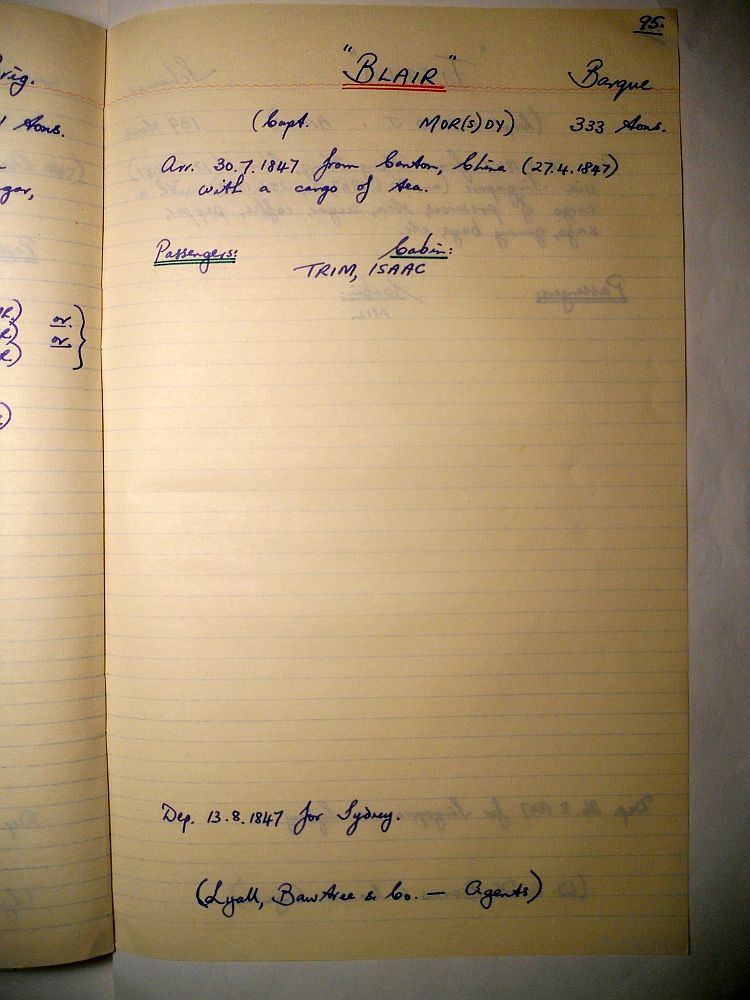 95.
"BLAIR" Barque
(Capt. MOR(S)DY) 333 tons.
Arr. 30.7.1847 from Canton, China (27.4.1847)
with a cargo of tea.
Passengers: Cabin:
TRIM, ISAAC
or.
or.
Dep. 13.8.1847 for Sydney.
(Lyall, Bawtree & Co. — Agents)